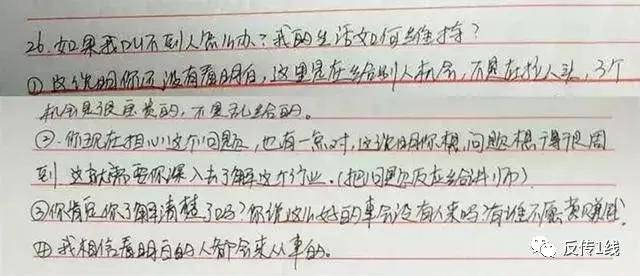 26.如果我以不到人怎么办?我的生活如何维持?
①这说明你还没有看明白,这里是在给别人机会,不是在拉人头,3个
机会是很宝贵的,不是乱给的。
②.你现在担心这个问题,也有一点对,这说明你想问题想得很周
到 这就需要你深入去了解这个行业.(把问题反应给讲师)
③你肯定你了解清楚了吗?你说这么好的事会没有人来吗?有谁不愿意赚钱
四 我相信看明白的人都会来从事的。
反传1线